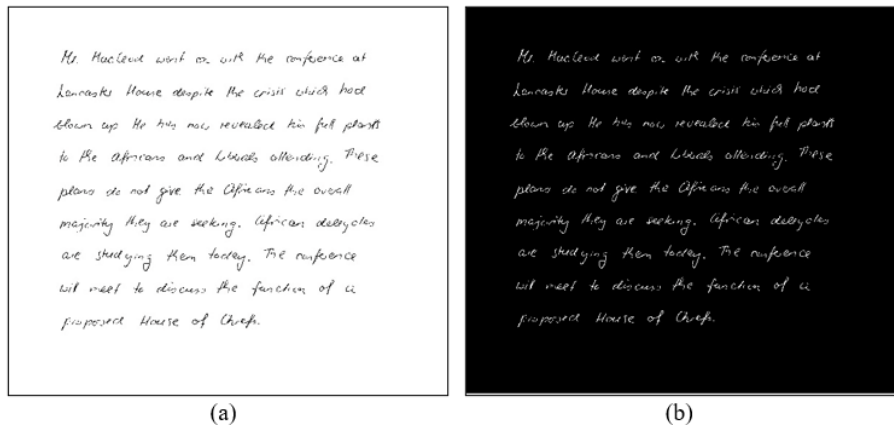 Mr. Macleod went on with the conference at
Lancaster House despite the crisis which had
blown up He has now revealed his full plans
to the Africans and Liberals attending. These
plans do not give the Africans the overall
majority they are seeking. African delegates
are studying them today. The conference
will meet to discuss the function of a
proposed House of Chiefs.
(a)
Mr. Macleod went on with the conference at
Lancaster House despite the crisis which had
blown up He has now revealed his full plans
to the Africans and Liberals attending. These
plans do not give the Africans the overall
majority they are seeking. African delegates
are studying them today. The conference
will meet to discuss the function of a
proposed House of Chiefs.
(b)